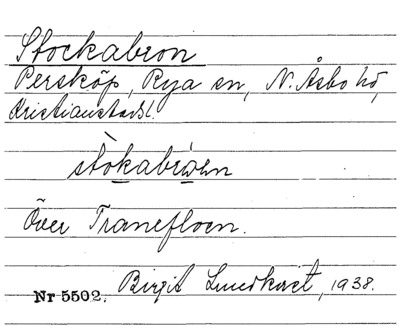 Stockabron
Persköp, Rya sn, N. Åsbo hd,
Kristianstads l.
stòkabrɷen
Över Tranefloen.
Nr 5502. Birgit Lundkvist, 1938.